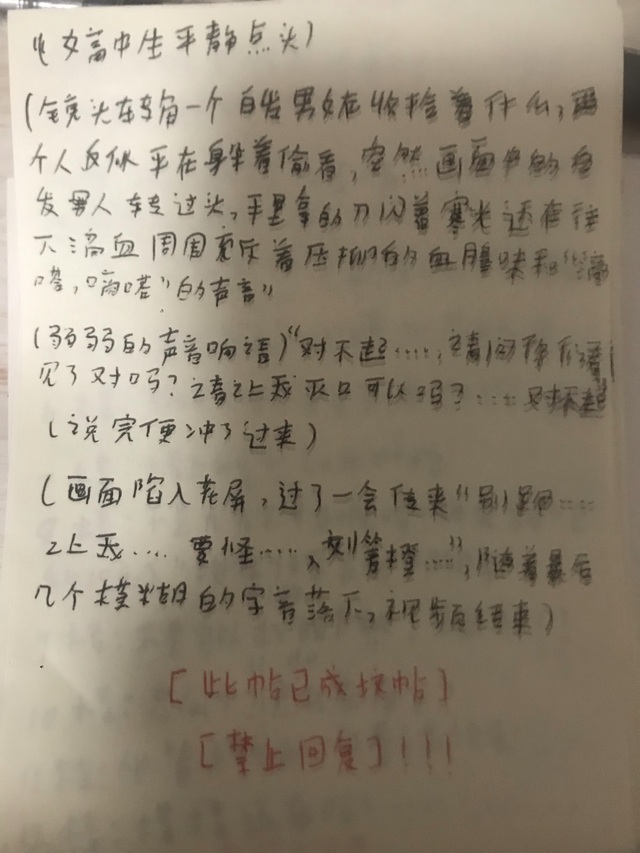 (女高中生平静点头)
(镜头在转角一个白发男女在收检着什么,两
个人反似乎在身半着偷看,突然画面中的白
发男人转过头,手里拿的刀闪着寒光还在往
下滴血周围充斥着压抑的血腥味和"滴
嗒,嘀嗒"的声音"
(弱弱的声音响 )"对不起……,请问你们看
见了对吗?请让我灭口可以吗?……对不起"
(说完便冲了过来)
(画面陷入花屏,过了一会传来"别跑……
让我……要怪……,刘 橙……",随着最后
几个模糊的字音落下,视频结束)
[此帖已成坟帖]
[禁止回复]!!!